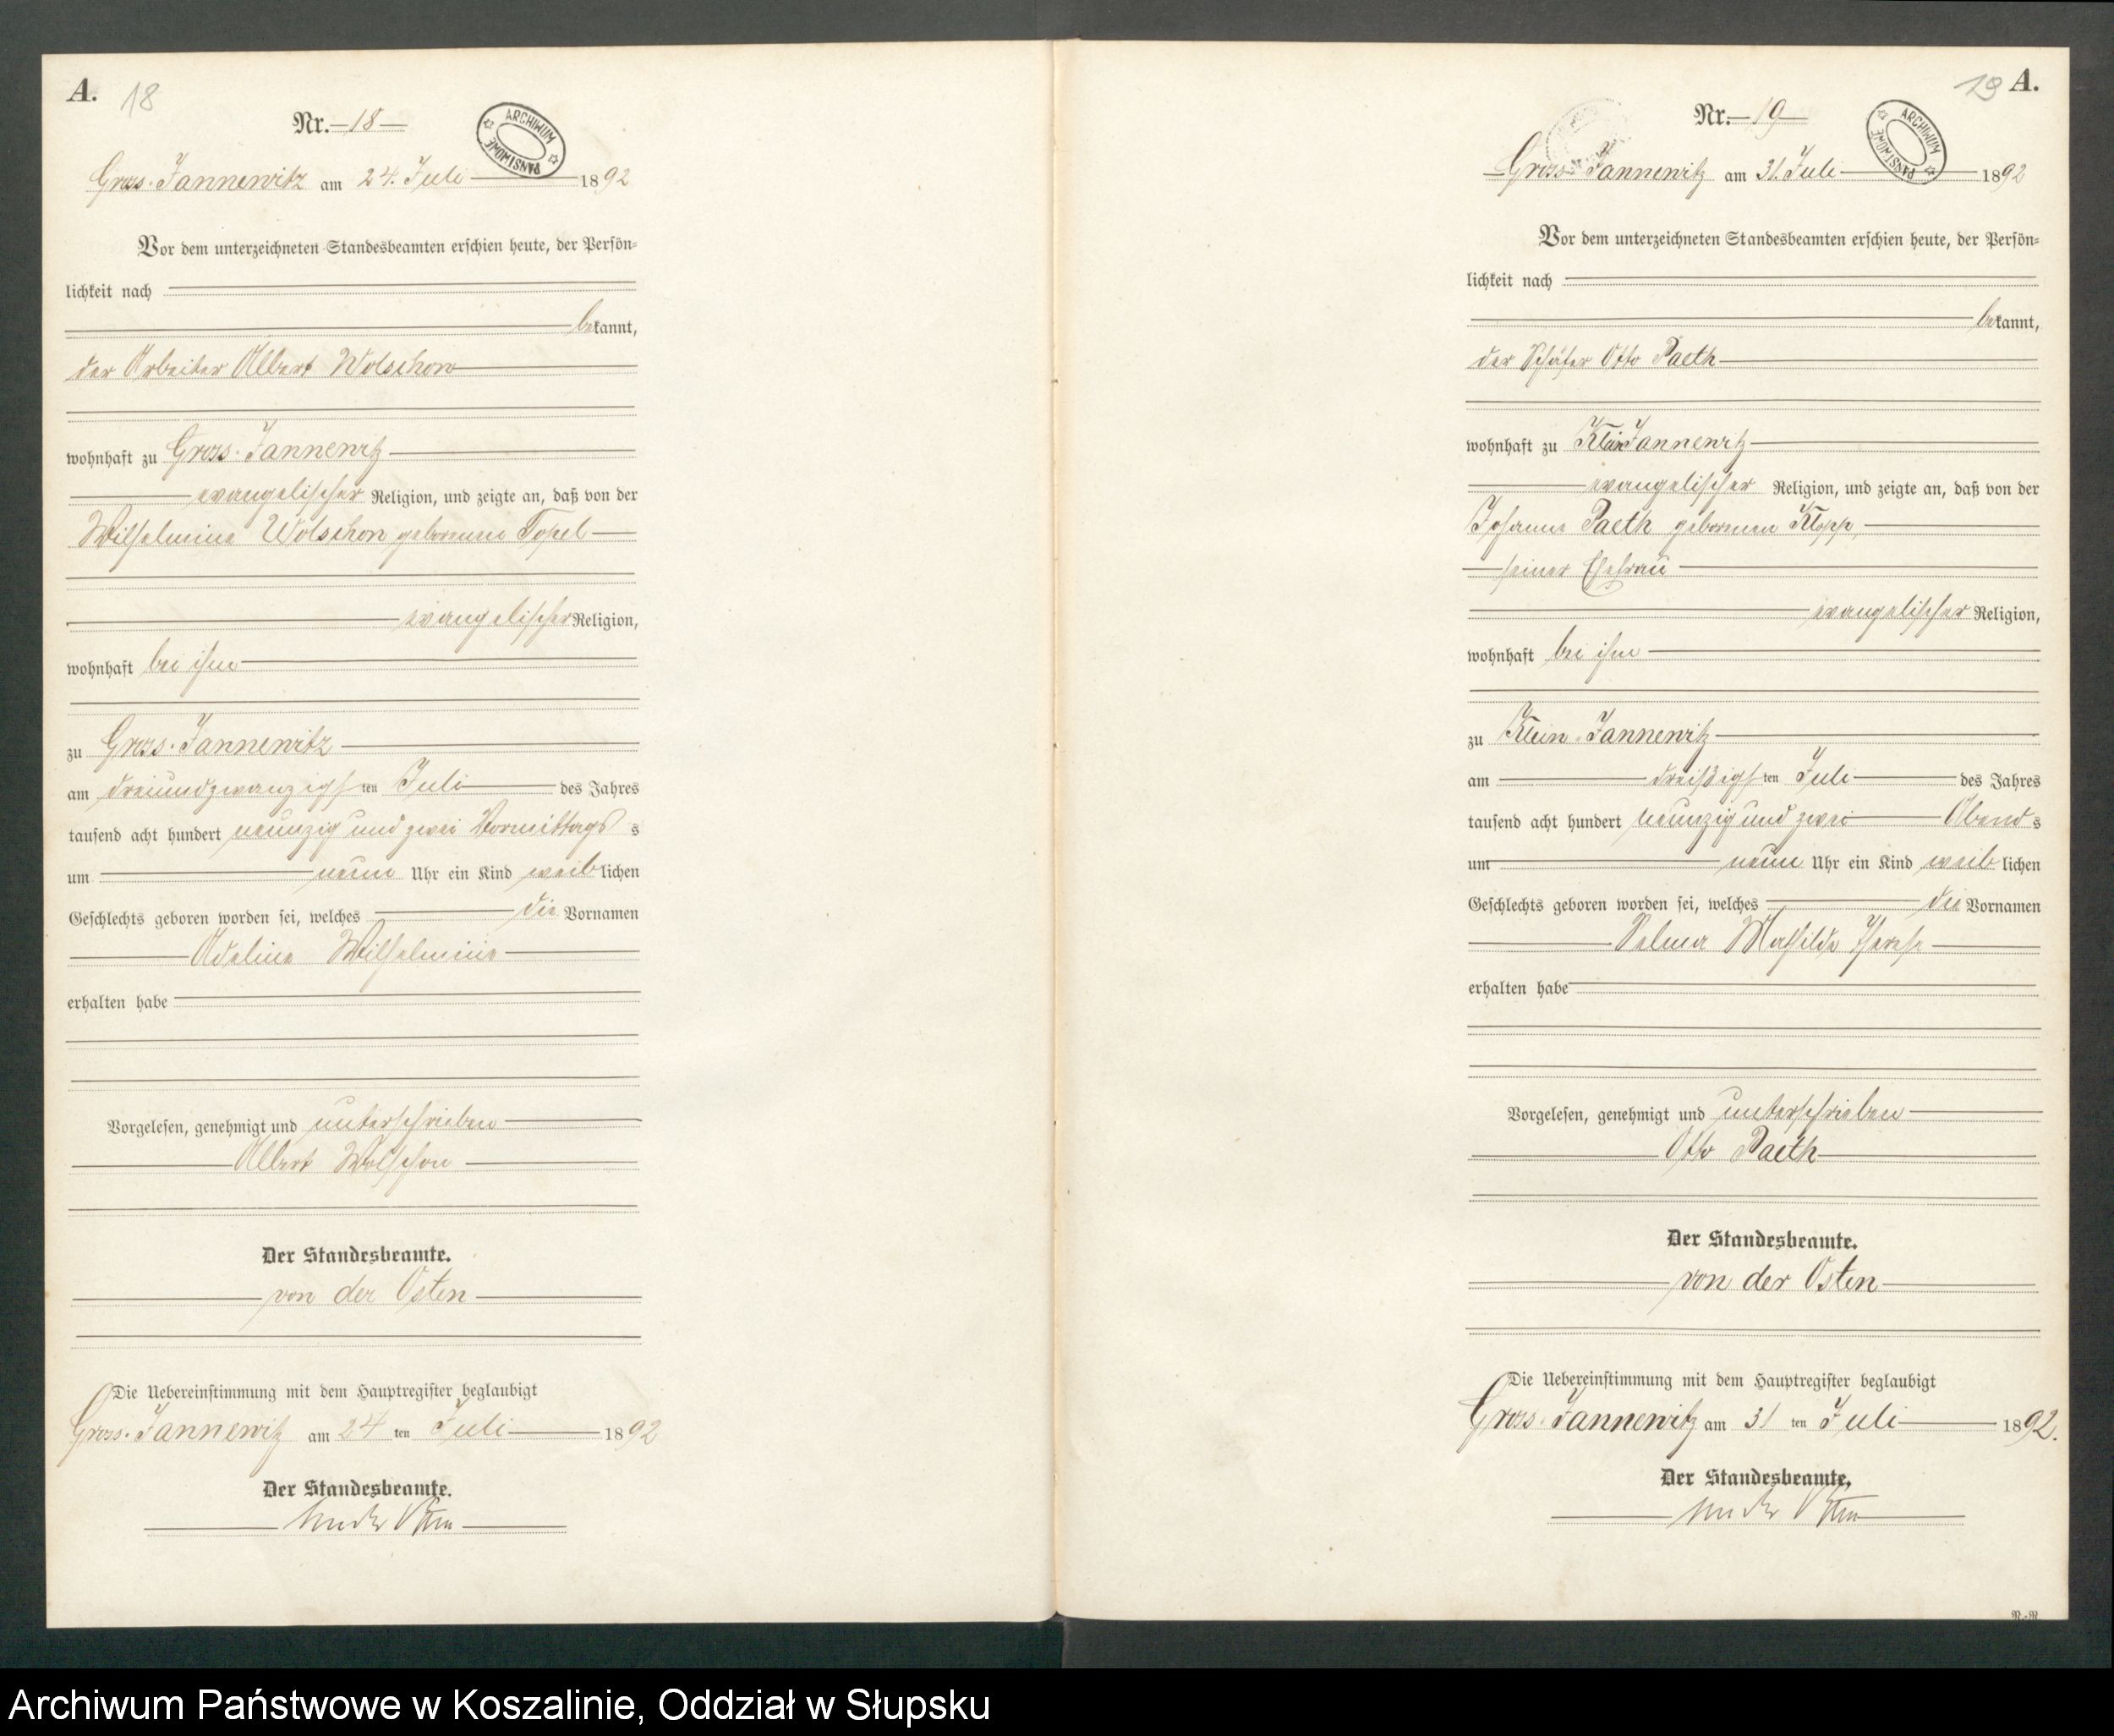 A.
18
Nr. 18
ARCHIWUM PAŃSTWOWE
Gross-Jannewitz am 24. Juli 1892
Vor dem unterzeichneten Standesbeamten erschien heute, der Persön=
lichkeit nach
bekannt,
der Arbeiter Albert Wolschon
wohnhaft zu Gross-Jannewitz
evangelischer Religion, und zeigte an, daß von der
Wilhelmine Wolschon geborenen
evangelischer Religion,
wohnhaft bei ihm
zu Gross-Jannewitz
am dreiundzwanzigsten Juli des Jahres
tausend acht hundert neunzig und zwei Vormittags s
um neun Uhr ein Kind weiblichen
Geschlechts geboren worden sei, welches die Vornamen
Adeline Wilhelmine
erhalten habe
Vorgelesen, genehmigt und unterschrieben
Albert Wolschon
Der Standesbeamte.
von der Osten
Die Uebereinstimmung mit dem Hauptregister beglaubigt
Gross-Jannewitz am 24 ten Juli 1892
Der Standesbeamte.
von der Osten
19
A.
Nr. 19
ARCHIWUM PAŃSTWOWE
Gross-Jannewitz am 31. Juli 1892
Vor dem unterzeichneten Standesbeamten erschien heute, der Persön=
lichkeit nach
bekannt,
der Schäfer Otto Paeth
wohnhaft zu Klein Jannewitz
evangelischer Religion, und zeigte an, daß von der
Johanne Paeth geborenen Klopp,
seiner Ehefrau
evangelischer Religion,
wohnhaft bei ihm
zu Klein-Jannewitz
am dreißigsten Juli des Jahres
tausend acht hundert neunzig und zwei Abends
um neun Uhr ein Kind weiblichen
Geschlechts geboren worden sei, welches die Vornamen
Selma Mathilde Therese
erhalten habe
Vorgelesen, genehmigt und unterschrieben
Otto Paeth
Der Standesbeamte.
von der Osten
Die Uebereinstimmung mit dem Hauptregister beglaubigt
Gross-Jannewitz am 31 ten Juli 1892.
Der Standesbeamte.
von der Osten
Archiwum Państwowe w Koszalinie, Oddział w Słupsku